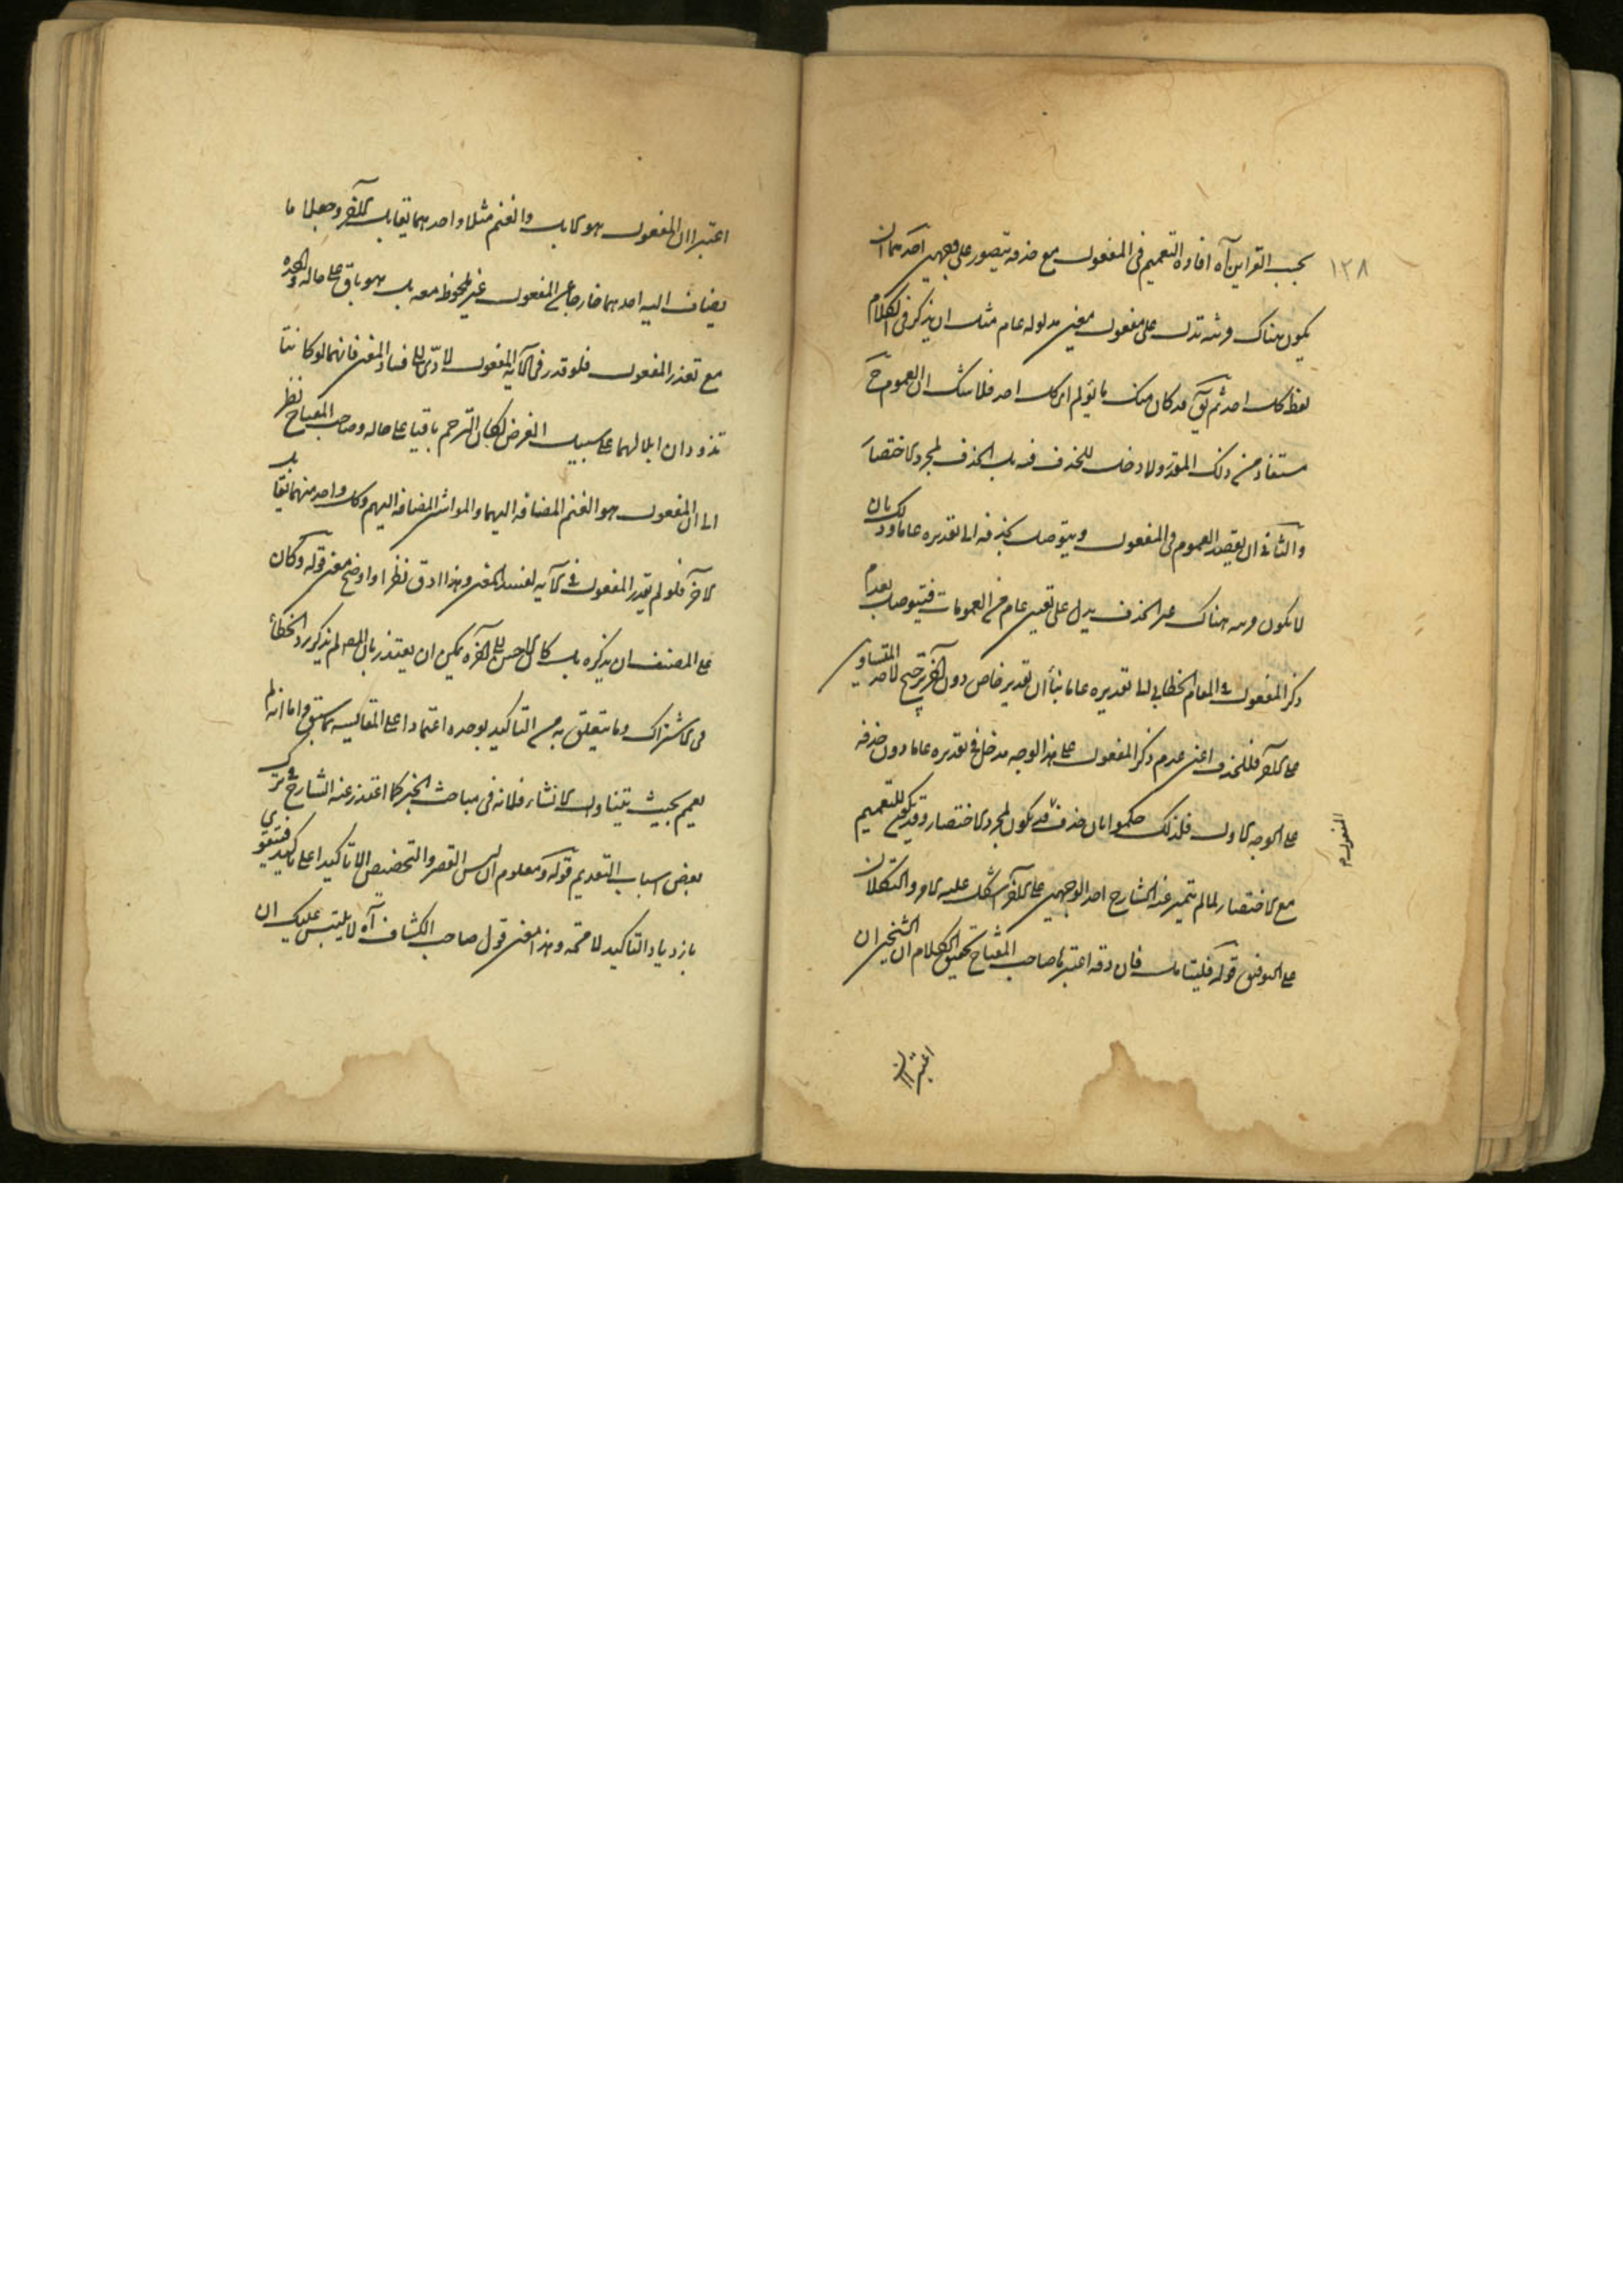 ١٢٨
بحسب القراين آه افادة التعميم فى المفعول مع حذفه يتصور على وجهين احدهما ان
يكون هناك قرينه تدل على مفعول معين مدلوله عام مثل ان يذكر فى الكلام
لفظ كل احد ثم يق قد كان منك ما يؤلم اى كل احد فلا شك ان العموم ح
مستفاد من ذلك المقدر ولا دخل للحذف فيه بل الحذف لمجرد الاختصار
والثانى ان يقصد العموم فى المفعول ويتوصل بحذفه الى تقديره عاما وذلك بان
لا يكون قرينه هناك غير الحذف يدل على تعيين عام من العمومات فيتوصل بعدم
ذكر المفعول فى المقام الخطابى الى تقديره عاما بناأ ان تقدير خاص دون آخر ترجيح لاحد المتساوى
على الآخر فللحذف اعنى عدم ذكر المفعول على هذا الوجه مدخل فى تقديره عاما دون حذفه
على الوجه الاول فلذلك حكموا بان حذف قد يكون لمجرد الاختصار وقد يكون للتعميم
المفعول
مع الاختصار لما لم يتميز عند الشارح احد الوجهين على الآخر اشكل عليه الامر والتكلان
على التوفيق قوله فليتامل فان دقة اعتبرها صاحب المفتاح تحقيق الكلام ان الشيخين ان
اعتبرا ان
اعتبرا ان المفعول هو الابل والغنم مثلا واحدهما يقابل الآخر وجعلا ما
يضاف اليه احدهما خارجا عن المفعول غير ملحوظ معه بل هو باق على حاله واحده
مع تعذر المفعول فلو قدر فى الآيه المفعول لادى الى فساد المعنى فانهما لو كانتا
تذودان ابلا لهما على سبيل الفرض لكان الترحم باقيا على حاله وصاحب المفتاح نظر
الى ان المفعول هو الغنم المضافه اليهما والمواشى المضافة اليهم وكل واحد منهما يقابل
الآخر فلو لم يقدر المفعول فى الآيه لفسد المعنى وهذا ادق نظرا واوضح معنى قوله وكان
على المصنف ان يذكره بل كان الاحسن الى آخره يمكن ان يعتذر بان المص لم يذكر رد الخطأ
فى الاشتراك وما يتعلق به من التاكيد بوحده اعتمادا على المقايسه بما سبق واما انه لم
يعمم بحيث يتناول الانشاء فلانه فى مباحث الخبر كما اعتذر عنه الشارح فى ترك
بعض اسباب التقديم قوله ومعلوم ان ليس القصر والتخصيص الا تاكيدا على تاكيد فيتقوى
بازدياد التاكيد لا محة وهذا معنى قول صاحب الكشاف آه لا يلتبس عليك ان